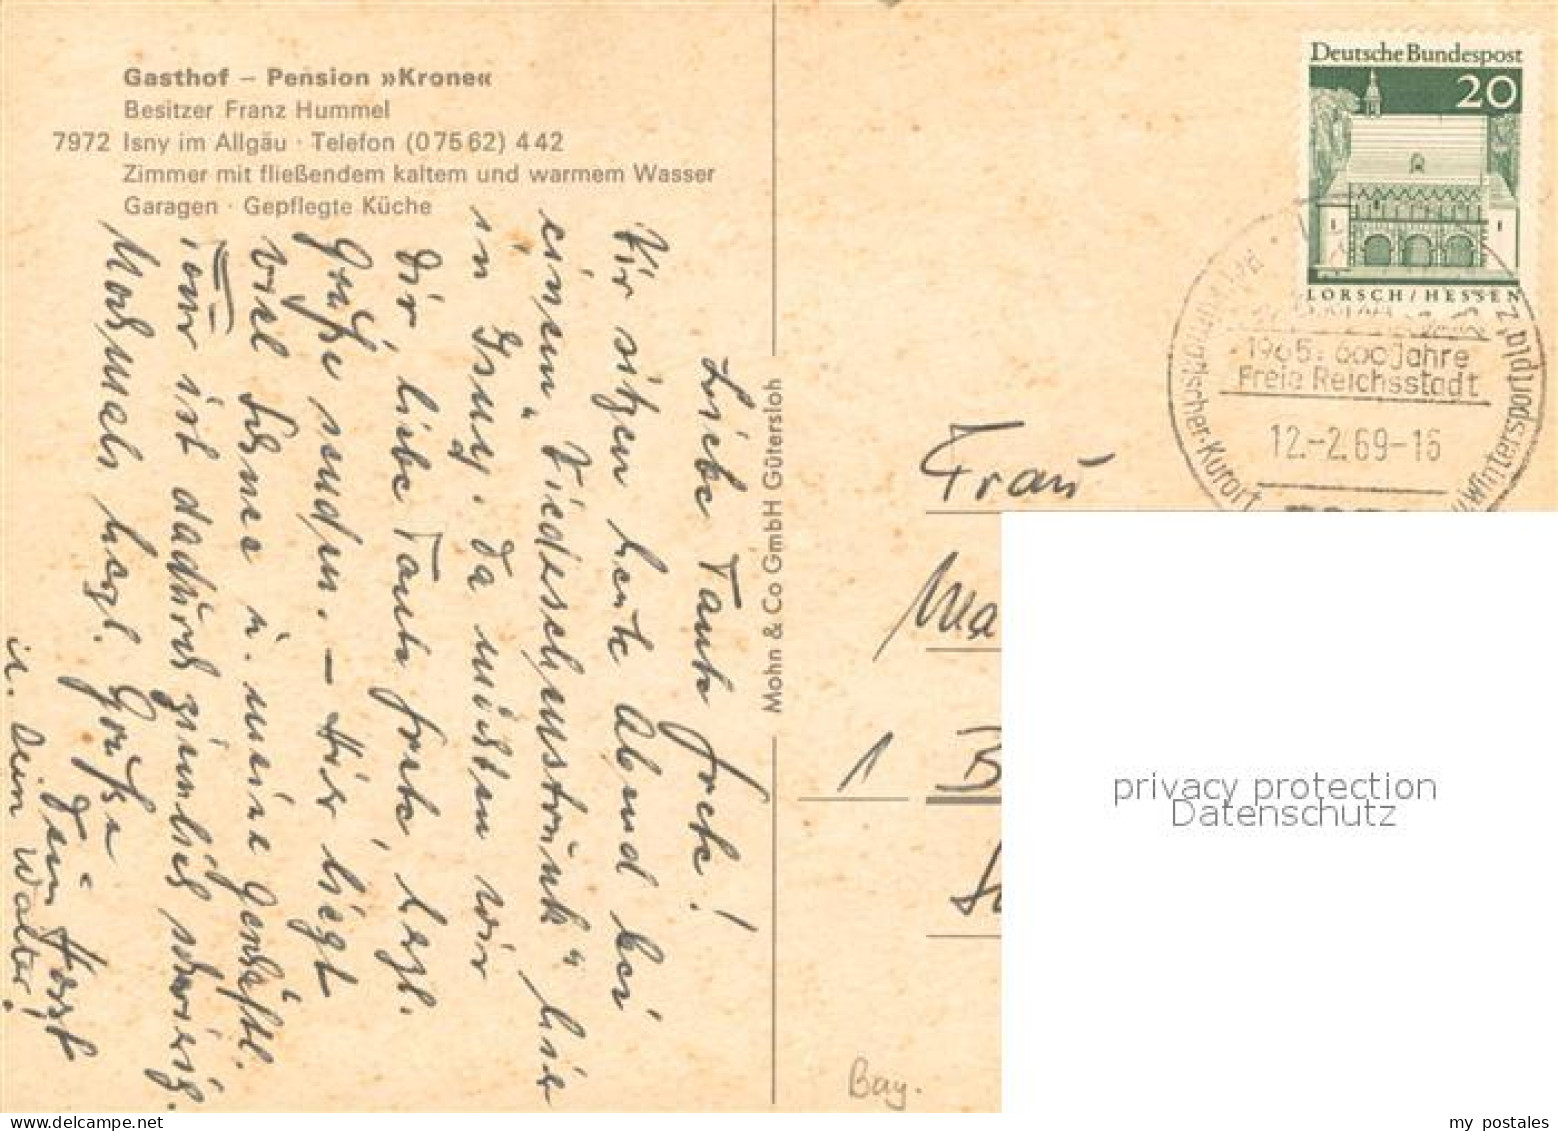 Gasthof – Pension »Krone«
Besitzer Franz Hummel
7972 Isny im Allgäu · Telefon (0 75 62) 4 42
Zimmer mit fließendem kaltem und warmem Wasser
Garagen · Gepflegte Küche
Liebe Tante Frete!
Wir sitzen heute Abend bei
einem „Viedeschmustrunk“ hier
in Isny. Da möchten wir
Dir, liebe Tante Frete, herzl.
Grüße senden. – Hier liegt
viel Schnee u. meine Geschäftl.
Tour ist dadurch ziemlich schwierig.
Nochmals herzl. Grüße
Dein Horst
u. Dein Walter!
Mohn & Co GmbH Gütersloh
Deutsche Bundespost
20
LORSCH/HESSEN
1965: 600 Jahre
Freie Reichsstadt
12.-2.69-16
Kurort
Wintersportplatz
Frau
Ma
1 B
Bay.
privacy protection
Datenschutz
my postales